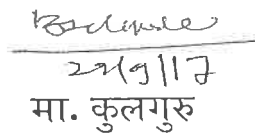 29/9/17
मा. कुलगुरु